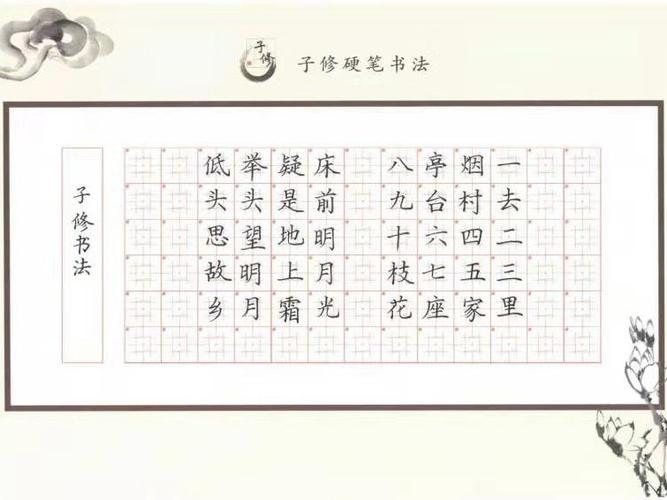 子修
子修硬笔书法
一去二三里
烟村四五家
亭台六七座
八九十枝花
床前明月光
疑是地上霜
举头望明月
低头思故乡
子修书法